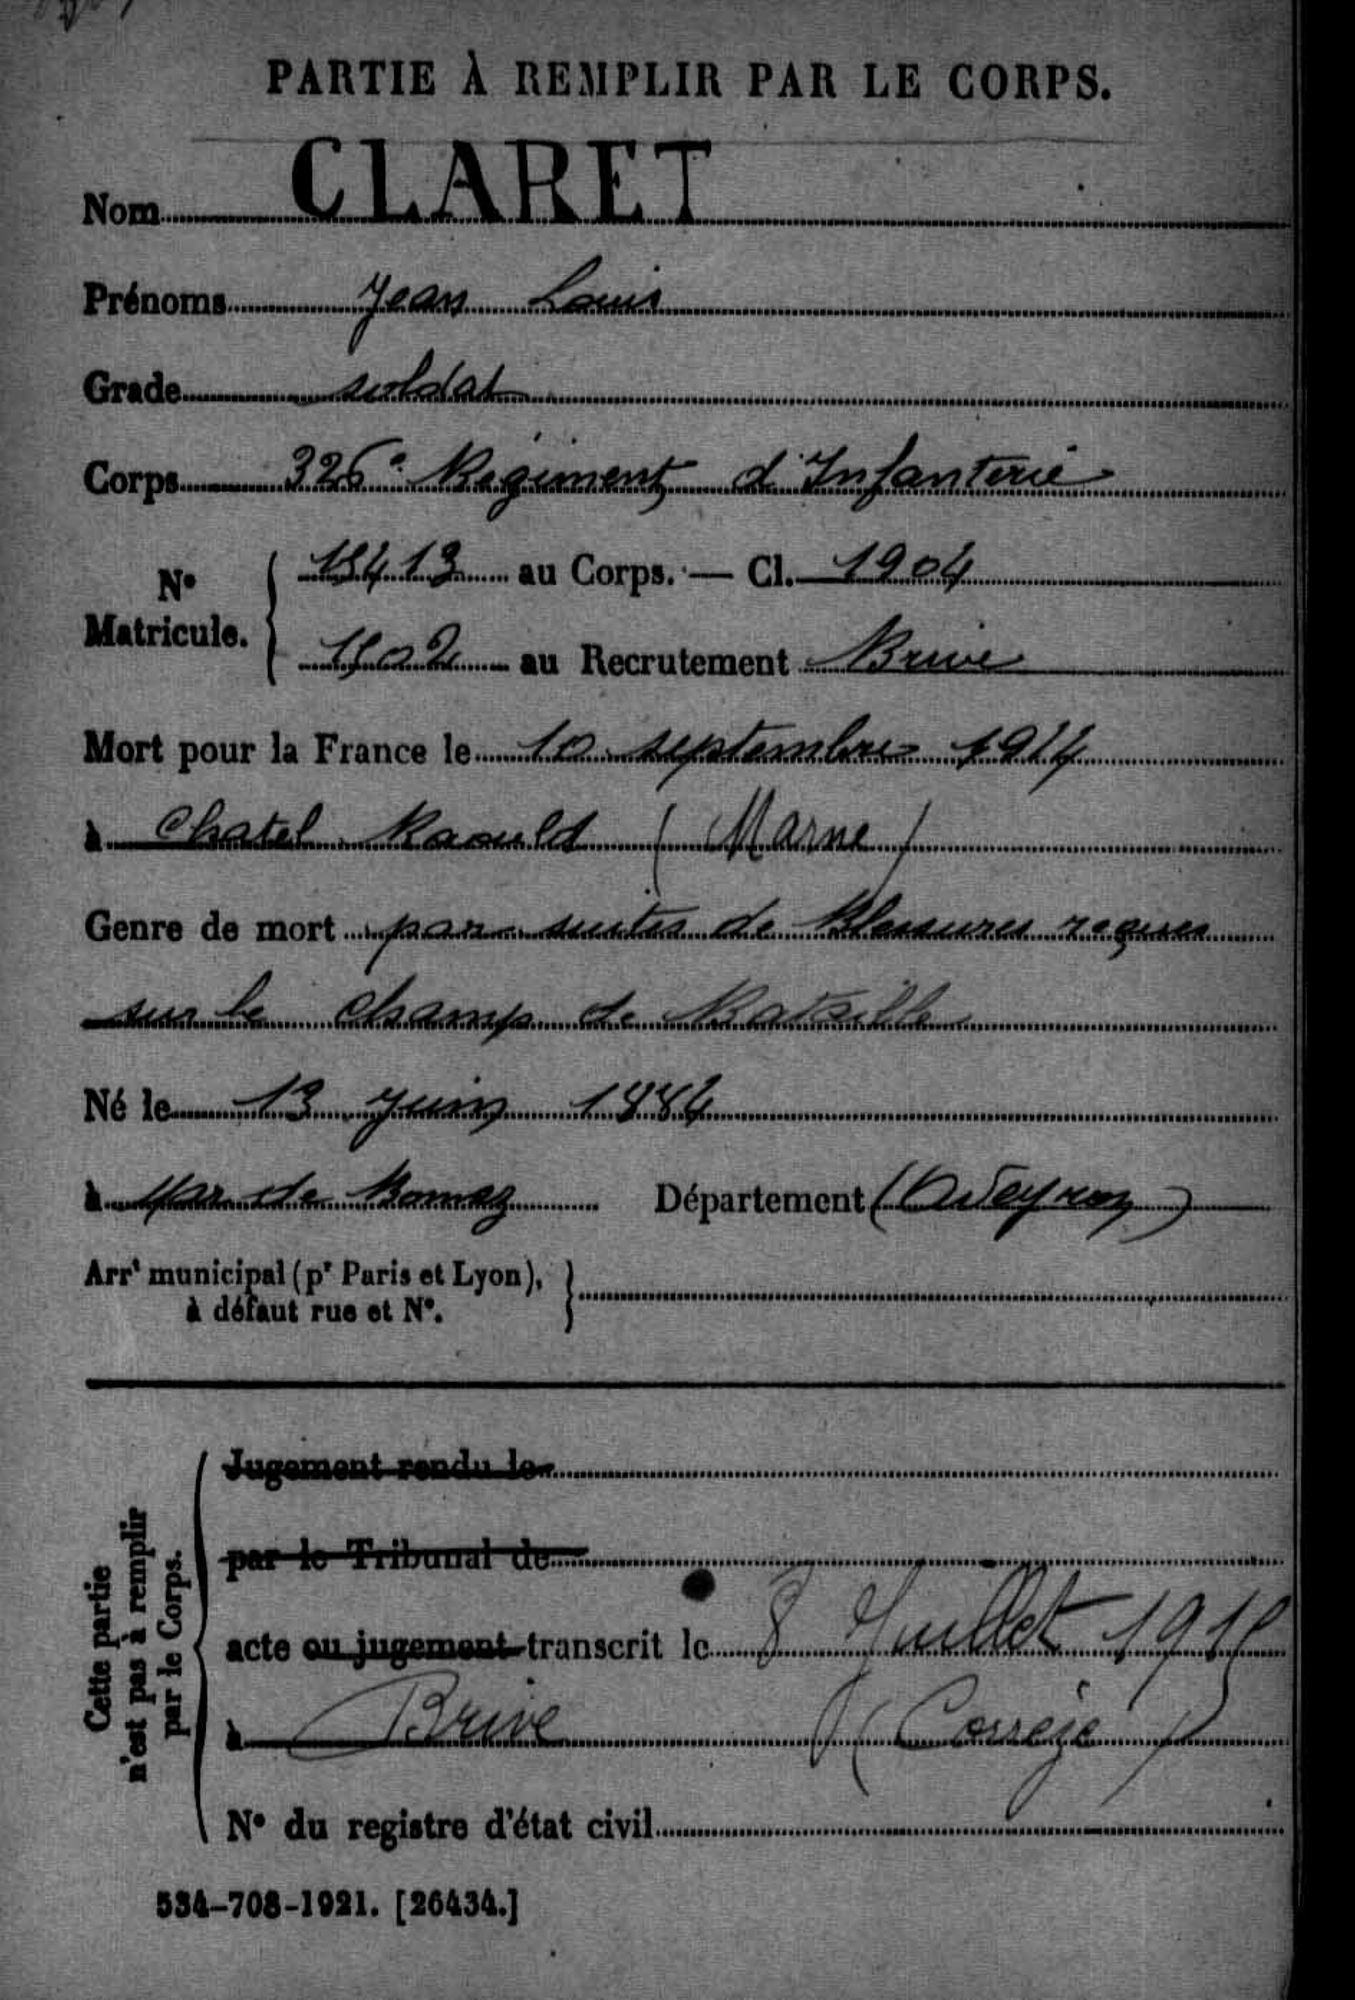 PARTIE À REMPLIR PAR LE CORPS.
Nom CLARET
Prénoms Jean Louis
Grade soldat
Corps 326e Régiment d'Infanterie
N° Matricule. au Corps. — Cl. 1904
au Recrutement Brive
Mort pour la France le 10 septembre 1914
à Chatel Raould (Marne)
Genre de mort par suites de blessures reçues
sur le champ de Bataille
Né le 13 juin 1884
à de Département (Aveyron)
Arrt municipal (pr Paris et Lyon), à défaut rue et N°.
Cette partie n'est pas à remplir par le Corps.
Jugement rendu le
par le Tribunal de
acte ou jugement transcrit le 8 Juillet 1915
à Brive (Corrèze)
N° du registre d'état civil
534-708-1921. [26434.]